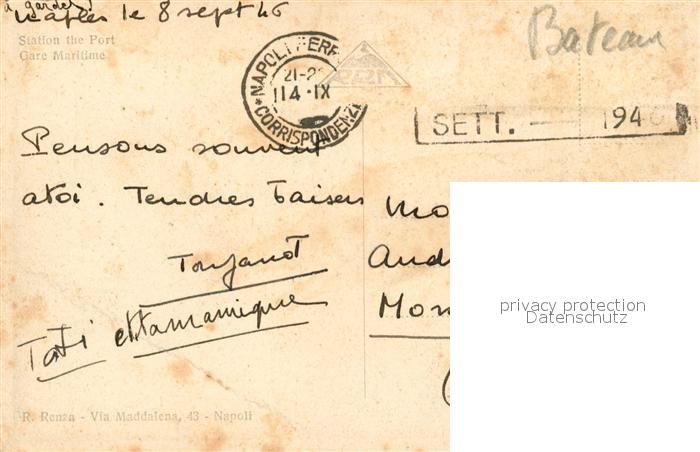 à garder
Naples le 8 sept 46
Station the Port
Gare Maritime
Bateau
NAPOLI FERR
21-2
14 · IX
CORRISPONDENZ
SETT. — 194
Pensons souvent
atoi . Tendres baisers
Mo
And
Mon
Tati
R. Renza - Via Maddalena, 43 - Napoli
privacy protection
Datenschutz